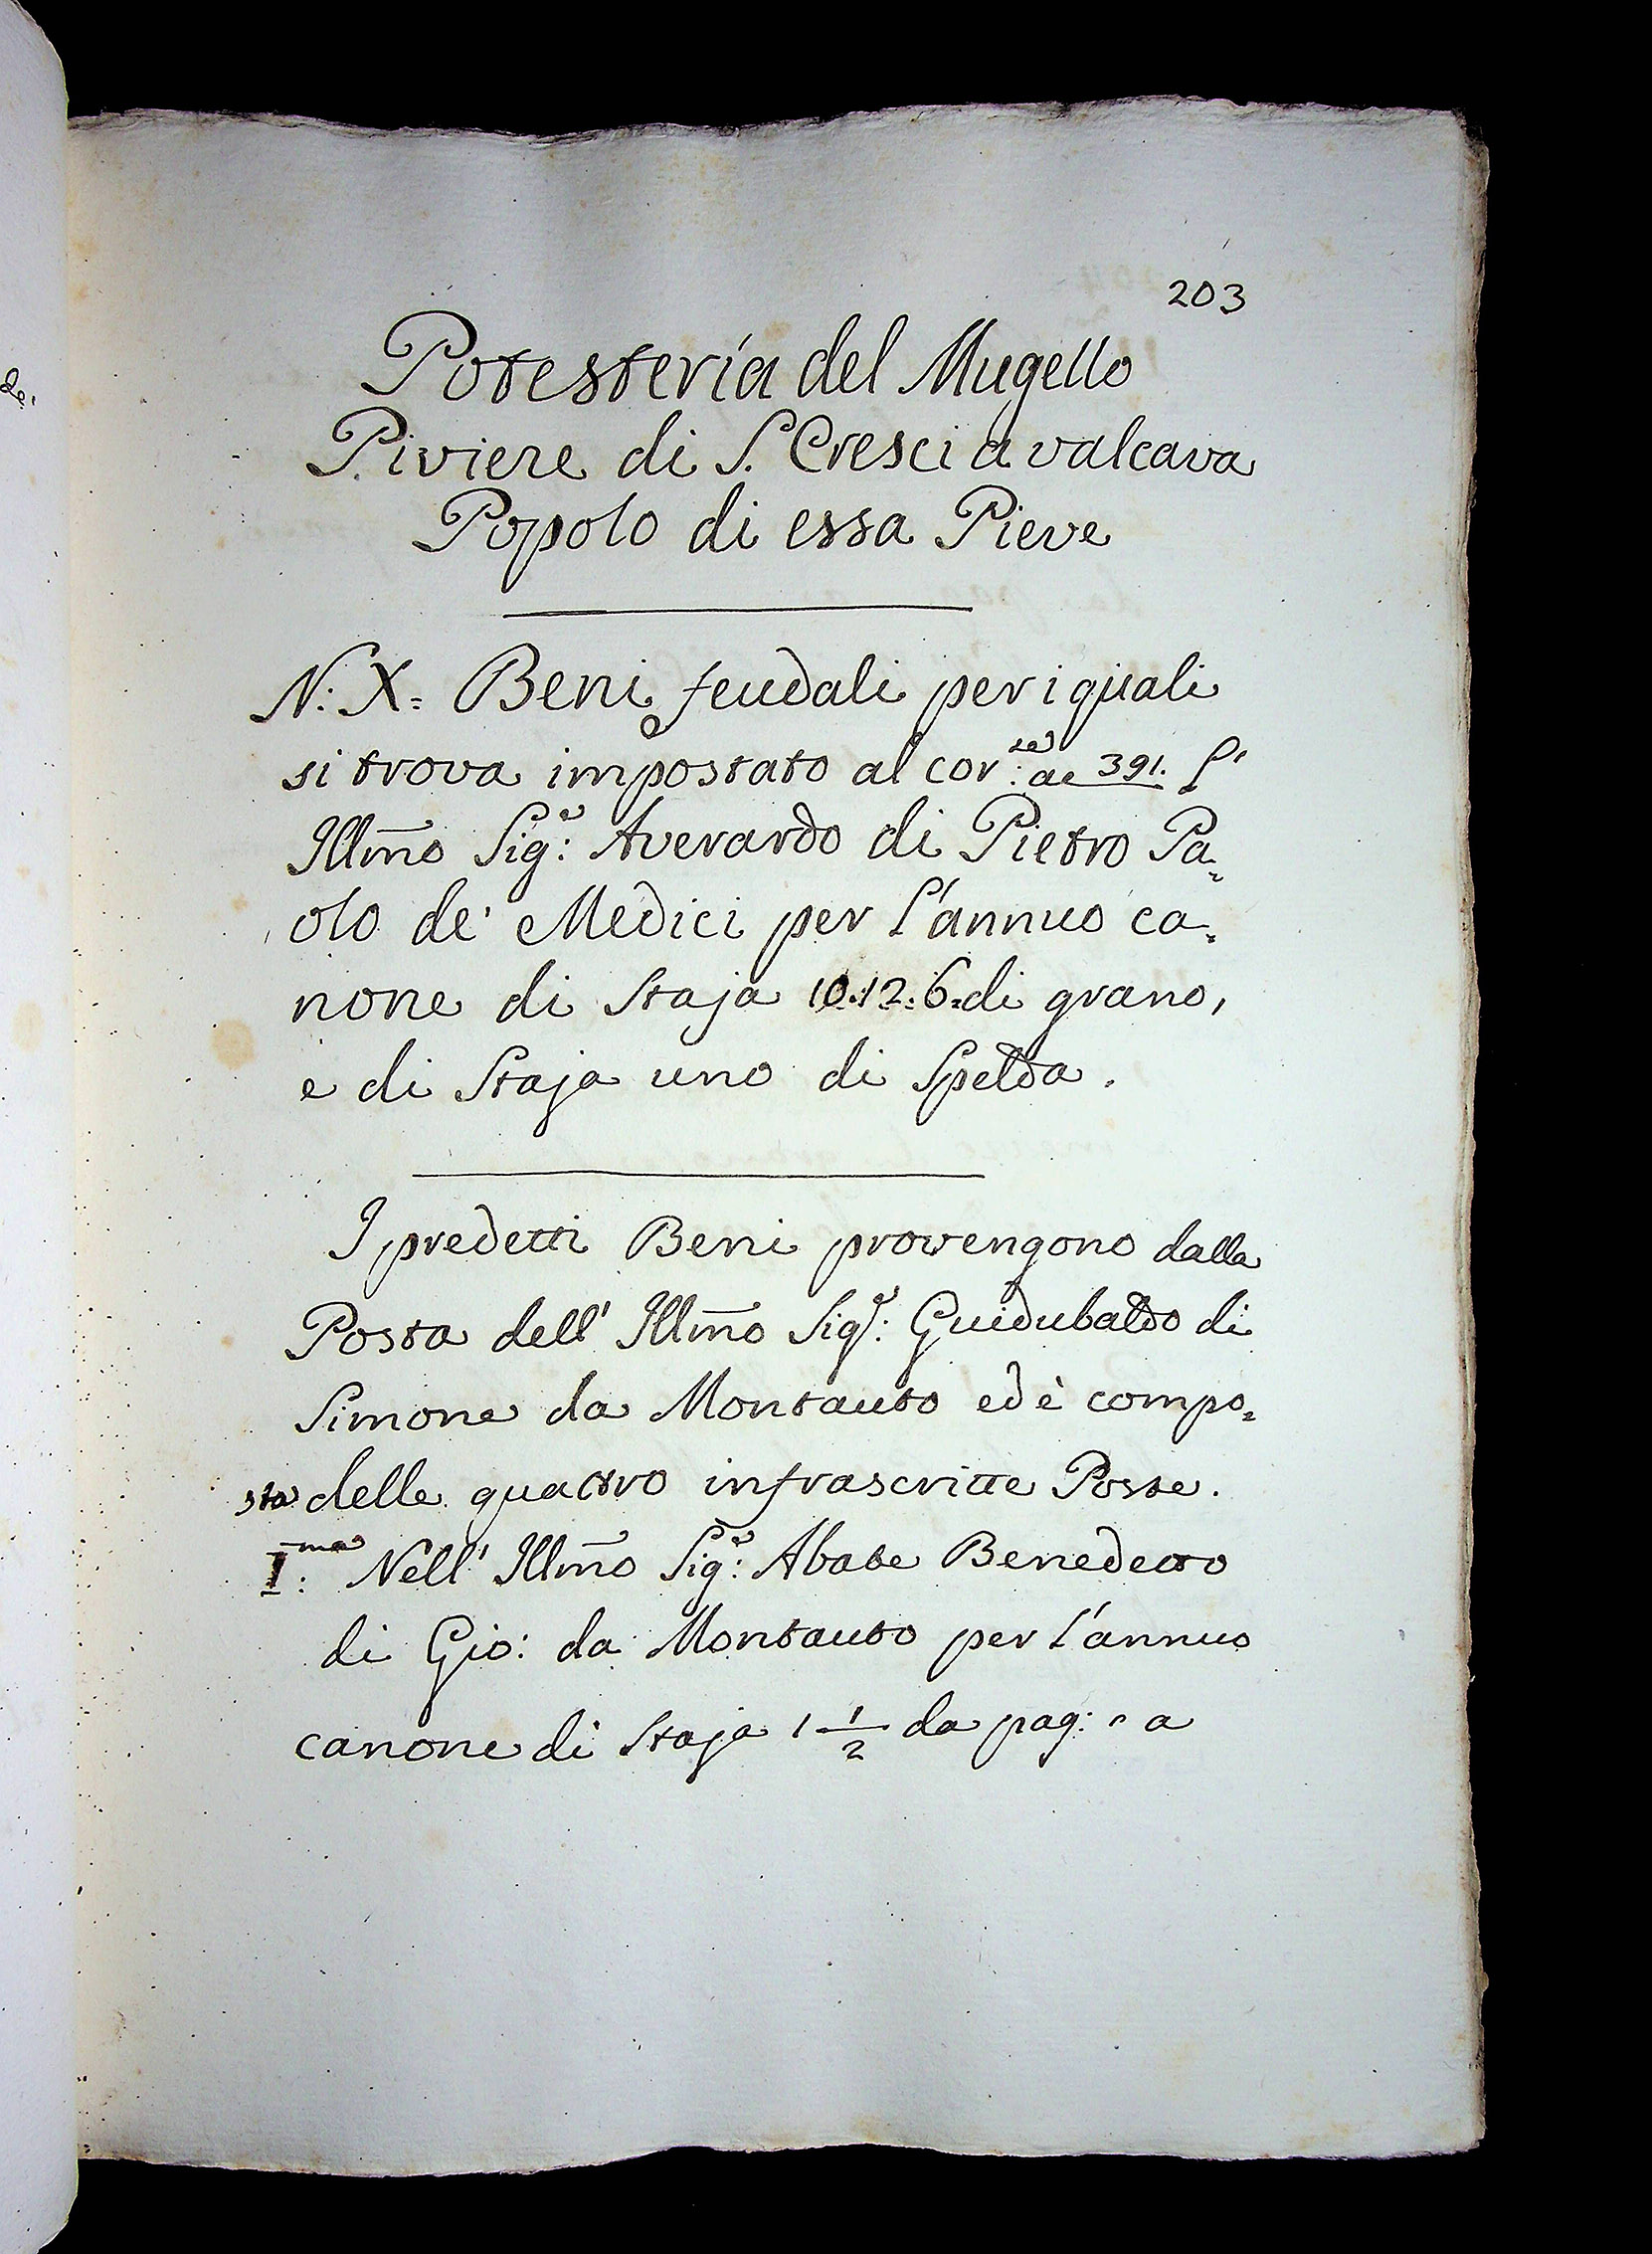 203
Potesteria del Mugello
Piviere di S. Cresci a valcava
Popolo di essa Pieve
N: X= Beni feudali per i quali
si trova impostato al cor:te a c 391. l'
Illm̃o Sig:e Averardo di Pietro Pa=
olo de' Medici per l'annuo ca=
none di Staja 10.12.6. di grano,
e di Staja uno di Spelda.
I predetti Beni provengono dalla
Posta dell' Illm̃o Sig:e Guidubaldo di
Simone da Montauto ed è compo=
sta delle quattro infrascritte Poste.
I:ma Nell' Illm̃o Sig:e Abate Benedetto
di Gio: da Montauto per l'annuo
canone di Staja 1 1/2 da pag: a